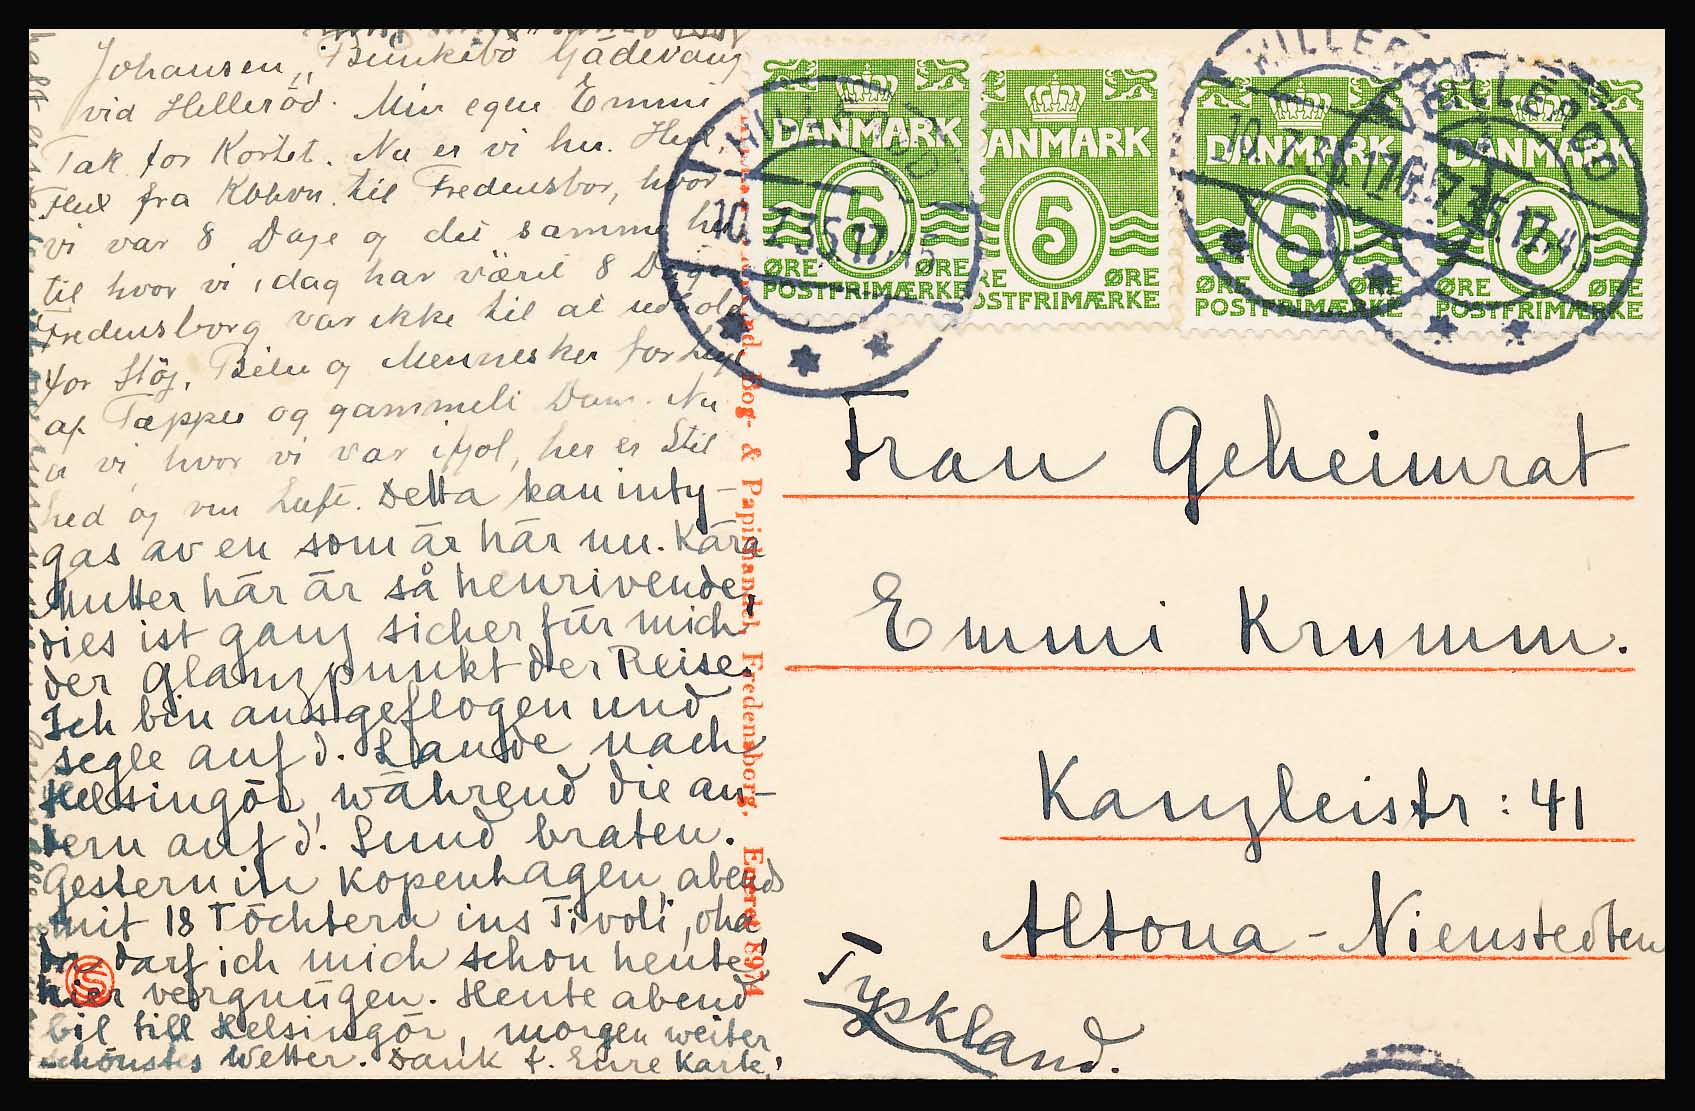 Johansen, "Bunkebo Gadevang
vid Hilleröd. Min egen Emmi
Tak for Kortet. Nu er vi her. Hid,
fra Kbhvn. til Fredensbor, hvor
vi var 8 Dage og det samme her
til hvor vi idag har väril 8 Dage
Fredensborg var ikke til at udhold
for Stöj, Biler og Mennesker
af Tæpper og gammelt Dam. Nu
er vi, hvor vi var ifjol, her er Stil
hed og ren Luft. Detta kan inty-
gas av en som är här nu. Kära
Mutter här är så henrivende,
dies ist ganz sicher für mich
der Glanzpunkt der Reise.
Ich bin ausgeflogen und
segle auf d. Lande nach
Helsingör, während die an-
dern auf d. Sund braten.
Gestern in Kopenhagen, abends
mit 18 Töchtern ins Tivoli, oha,
da darf ich mich schon heute
hier vergnügen. Heute abend
bil till Helsingör, morgen weiter
schönstes Wetter. Dank f. Eure Karte!
Bog- & Papirhandel, Fredensborg. Eneret 5974
DANMARK
5
ØRE
ØRE
POSTFRIMÆRKE
DANMARK
5
ØRE
POSTFRIMÆRKE
DANMARK
5
ØRE
ØRE
POSTFRIMÆRKE
DANMARK
5
ØRE
ØRE
POSTFRIMÆRKE
HILLERØD
10.7.36.17.45
HILLERØD
10.7.36.17.45
HILLERØD
10.7.36.17.45
Frau Geheimrat
Emmi Krumm.
Kanzleistr: 41
Altona-Nienstedten
Tyskland.